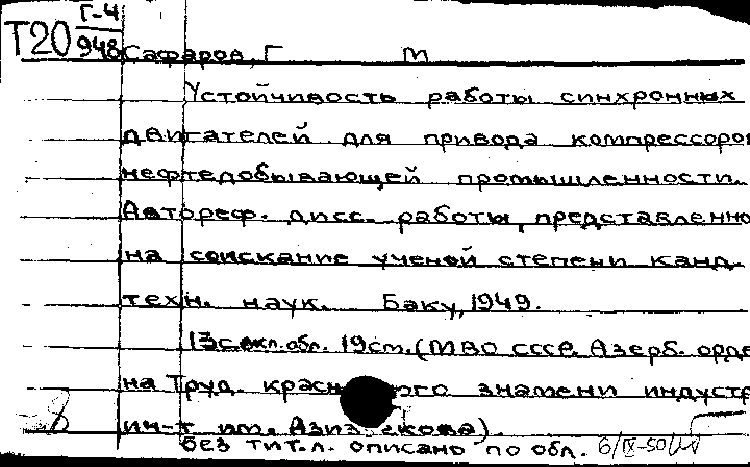 Г-4
Т20 948
Сафаров, Г М
Устойчивость работы синхронных
двигателей для привода компрессоров
нефтедобывающей промышленности.
Автореф. дисс. работы, представленно
на соискание ученой степени канд.
техн. наук. Баку, 1949.
13с.вкл.обл. 19см. (МВО СССР. Азерб. орде
на Труд. красн ого знамени индустр
ин-т им. Азиз екова).
Без тит.л. описано по обл. 6/IX-50